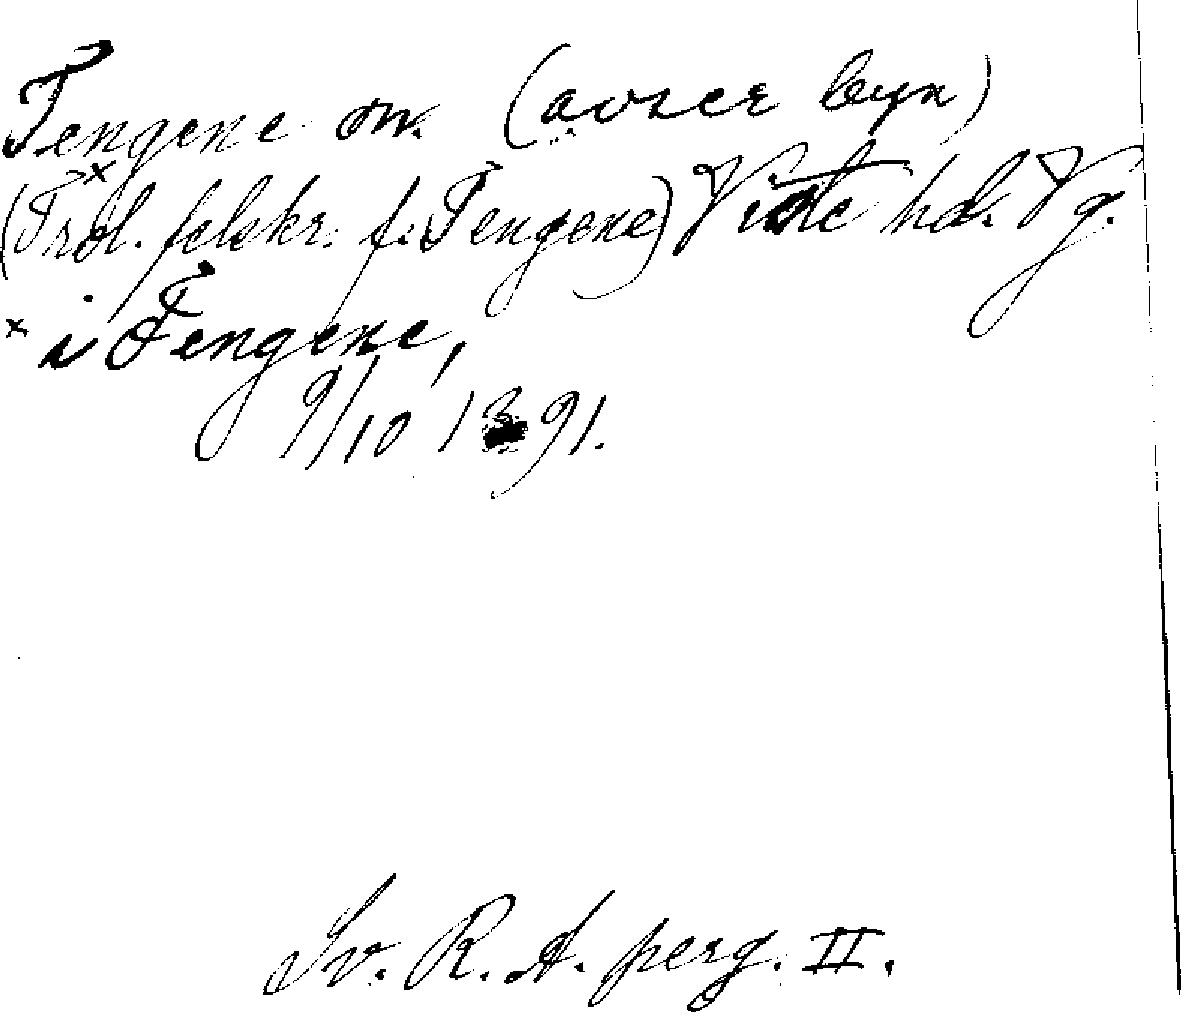 Tengene sn. (avser byn)
(Trol. felskr. f. Tengene) Viste hd. Vg.
× i Fengene,
9/10 1391.
Sv. R. A. perg. II.